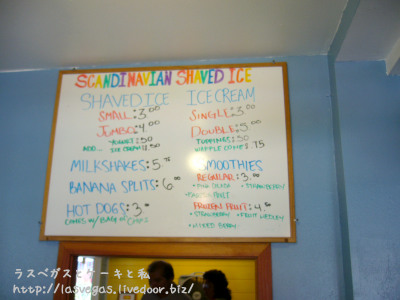 SCANDINAVIAN SHAVED ICE
SHAVED ICE
SMALL: 3.00
JUMBO: 4.00
YOGURT: .50
ADD... ICE CREAM: .50
MILKSHAKES: 5.
BANANA SPLITS: 6.00
HOT DOGS: 3.
COMES W/ BAG OF CHIPS
ICE CREAM
SINGLE: 3.
DOUBLE: 5.
TOPPINGS: .50
WAFFLE CONE: .75
SMOOTHIES
REGULAR: 3.00
• PINA COLADA • STRAWBERRY
FROZEN FRUIT: 4.50
• STRAWBERRY • FRUIT MEDLEY
• MIXED BERRY
ラスベガスとケーキと私
http://lasvegas.livedoor.biz/